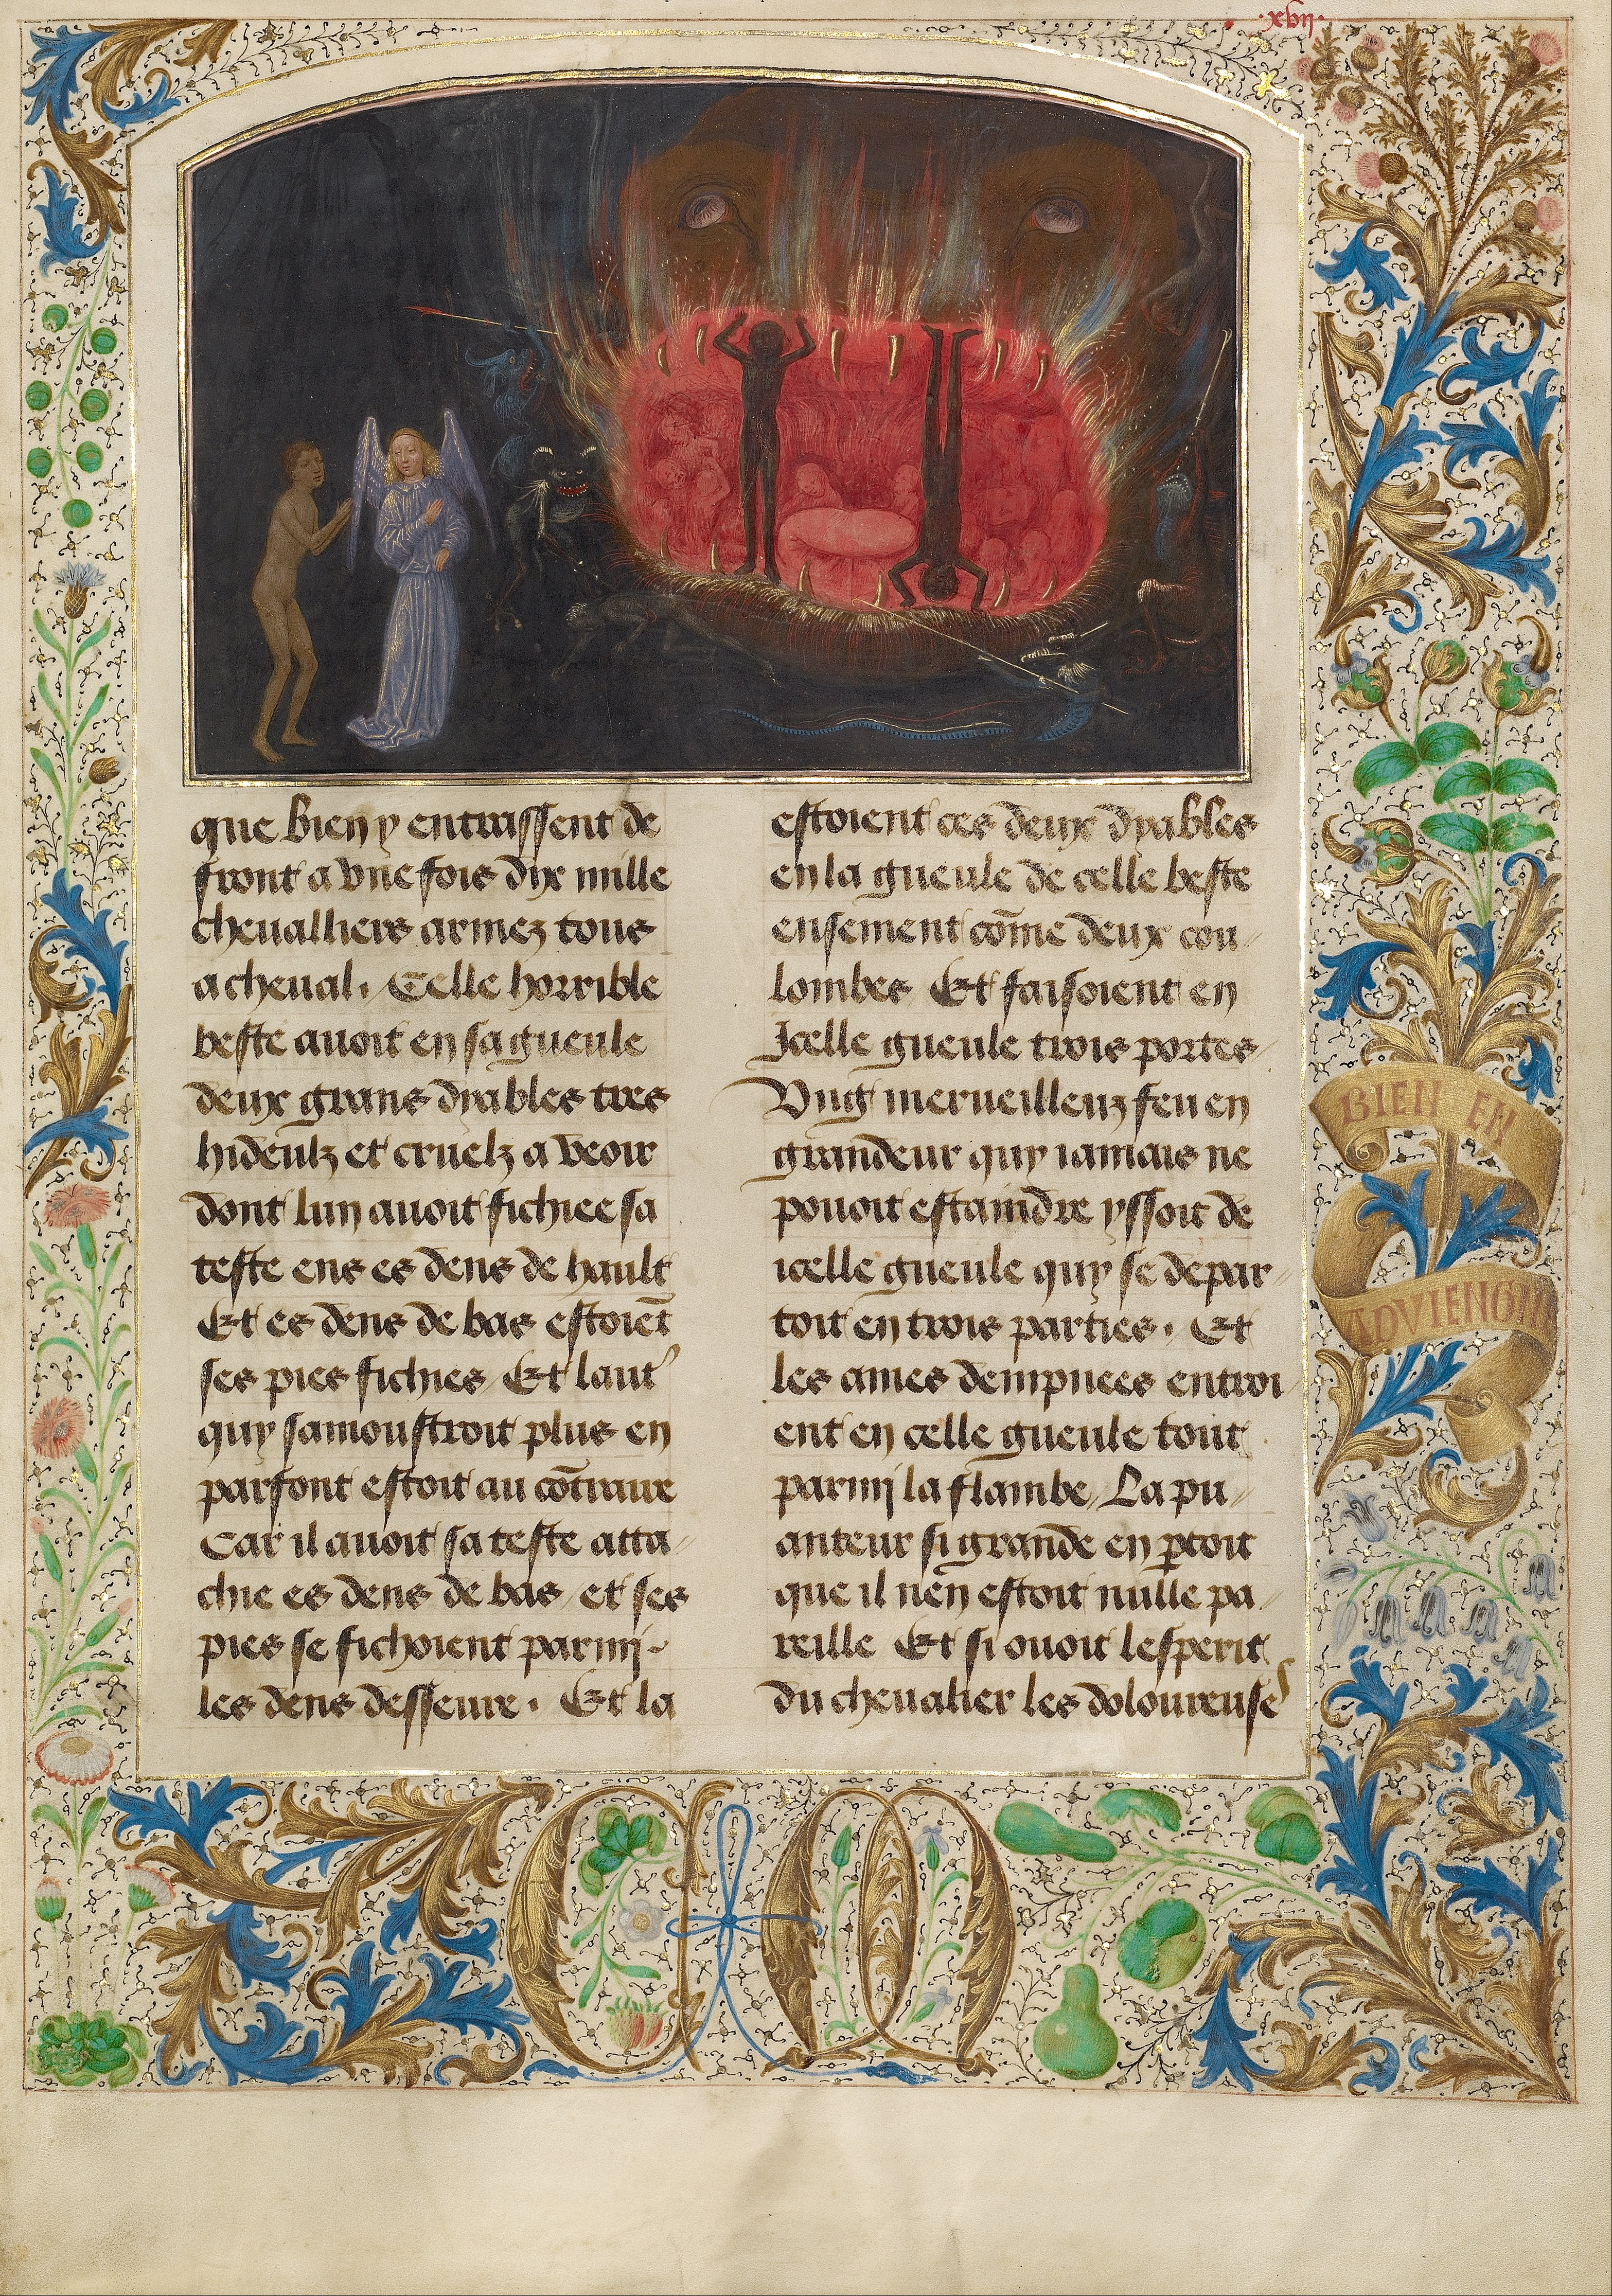 .xvij.
que bien y entrassent de
front a vne fois dix mille
cheualliers armez tous
a cheual. Celle horrible
beste auoit en sa gueule
deux grans dyables tres
hideulz et cruelz a veoir
dont lun auoit fichiee sa
teste ens es dens de hault
Et es dens de bas estoiẽt
ses pies fichies / Et laut’
quy samoustroit plus en
parfont estoit au cõtraire
Car il auoit sa teste atta-
chie es dens de bas / et ses
pies se fichoient parmj
les dens desseure. Et la
estoient ces deux dyables
en la gueule de celle beste
ensement cõme deux cou-
lombes Et faisoient en
Jcelle gueule trois portes /
Vng merueilleuz feu en
grandeur quy iamais ne
pouoit estaindre yssoit de
icelle gueule quy se depar-
toit en trois parties. Et
les ames dempnees entroi
ent en celle gueule tout
parmj la flambe / La pu-
anteur si grande en ꝑtoit
que il nen estoit nulle pa-
reille Et si ouoit lesperit
du cheualier les doloureuses
BIEN EN
ADVIENGNE
C M